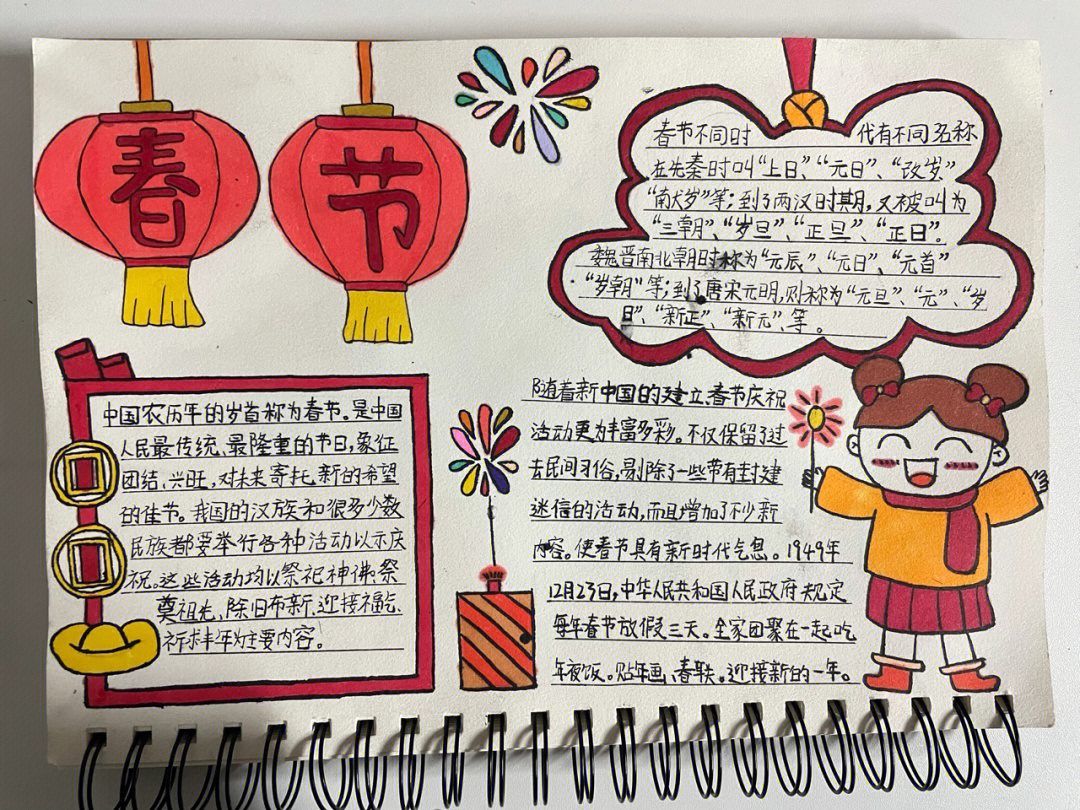 春节
春节不同时代有不同名称
在先秦时叫“上日”、“元日”、“改岁”
“献岁”等；到了两汉时期，又被叫为
“三朝”、“岁旦”、“正旦”、“正日”。
魏晋南北朝时称为“元辰”、“元日”、“元首”
“岁朝”等；到了唐宋元明，则称为“元旦”、“元”、“岁
日”、“新正”、“新元”、等。
中国农历年的岁首称为春节。是中国
人民最传统、最隆重的节日，象征
团结、兴旺，对未来寄托新的希望
的佳节。我国的汉族和很多少数
民族都要举行各种活动以示庆
祝。这些活动均以祭祀神佛、祭
奠祖先、除旧布新、迎接福乞、
祈求丰年为主要内容。
随着新中国的建立，春节庆祝
活动更为丰富多彩。不仅保留了过
去民间习俗，剔除了一些带有封建
迷信的活动，而且增加了不少新
内容。使春节具有新时代气息。1949年
12月23日，中华人民共和国人民政府规定
每年春节放假三天。全家团聚在一起吃
年夜饭。贴年画、春联。迎接新的一年。